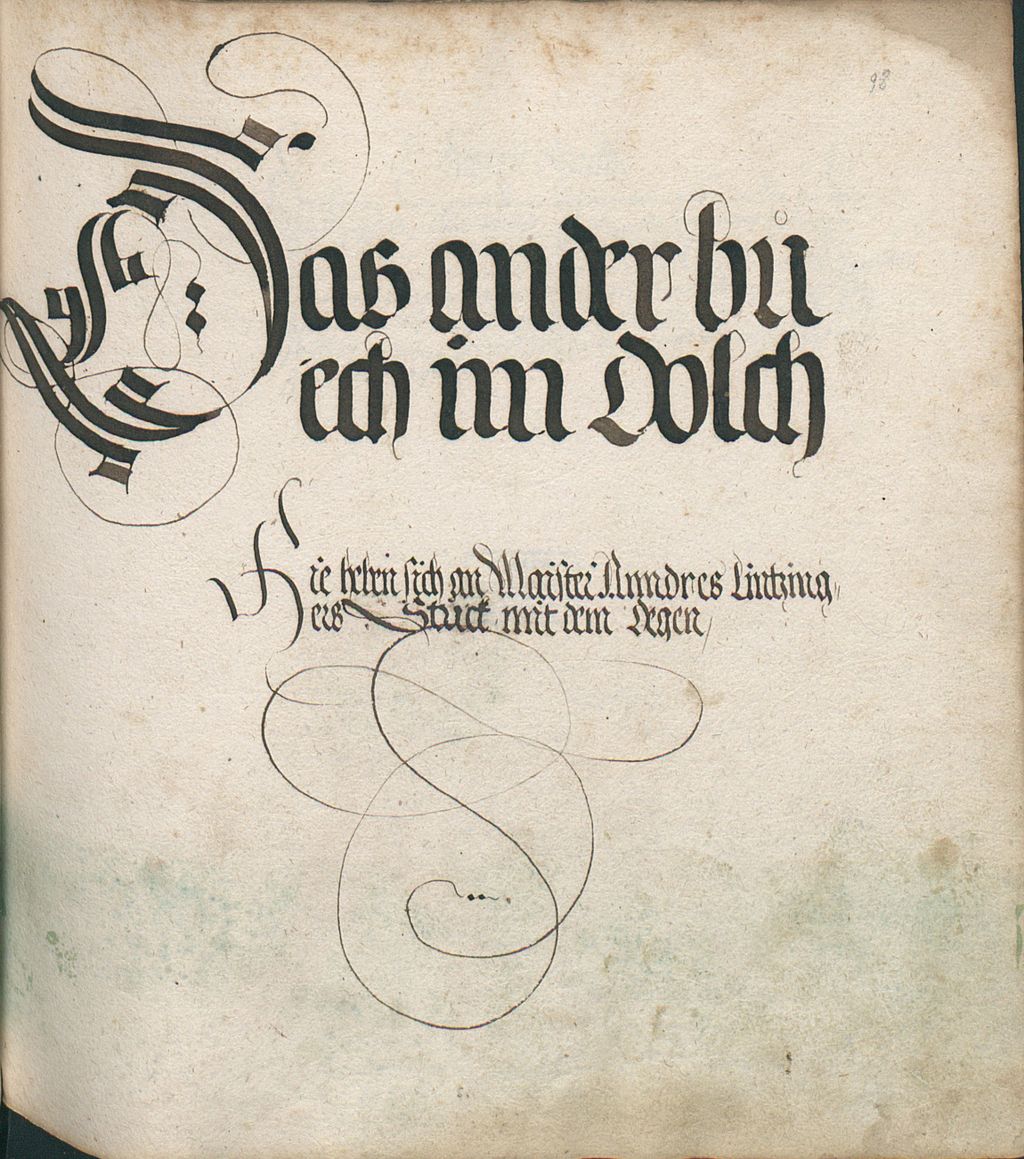 98
Das ander bů
ech im Dolch
Hie heben sich an Maister Anndres Lintzing,
ers Stuck mit dem Degen/